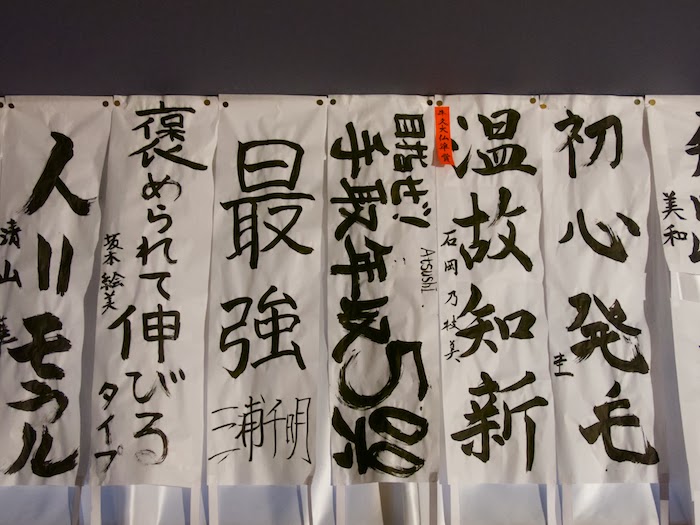 美和
初心発毛
圭
温故知新
石岡乃枝美
目指せ!!
手取年収500
Atsushi.
最強
三浦千明
褒められて
伸びろ
タイプ
坂本絵美
モラル
清山